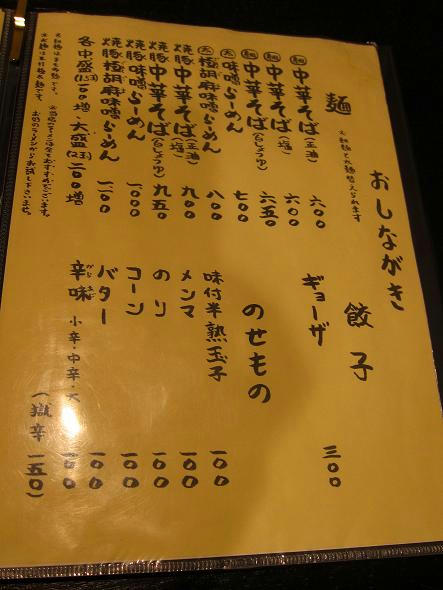 おしながき
麺
細麺と太麺替えられます
細 中華そば(正油) 六〇〇
細 中華そば(塩) 六〇〇
細 中華そば(白しょうゆ) 六五〇
太 味噌らーめん 七〇〇
太 極胡麻味噌らーめん 八〇〇
焼豚中華そば(正油) 九〇〇
焼豚中華そば(塩) 九〇〇
焼豚中華そば(白しょうゆ) 九五〇
焼豚味噌らーめん 一〇〇〇
焼豚極胡麻味噌らーめん 一一〇〇
各中盛(1.5玉)一〇〇増・大盛(2玉)二〇〇増
餃子
ギョーザ 三〇〇
のせもの
味付半熟玉子 一〇〇
メンマ 一〇〇
のり 一〇〇
コーン 一〇〇
バター 一〇〇
辛味 小辛・中辛・大 一〇〇
(獄辛 一五〇)